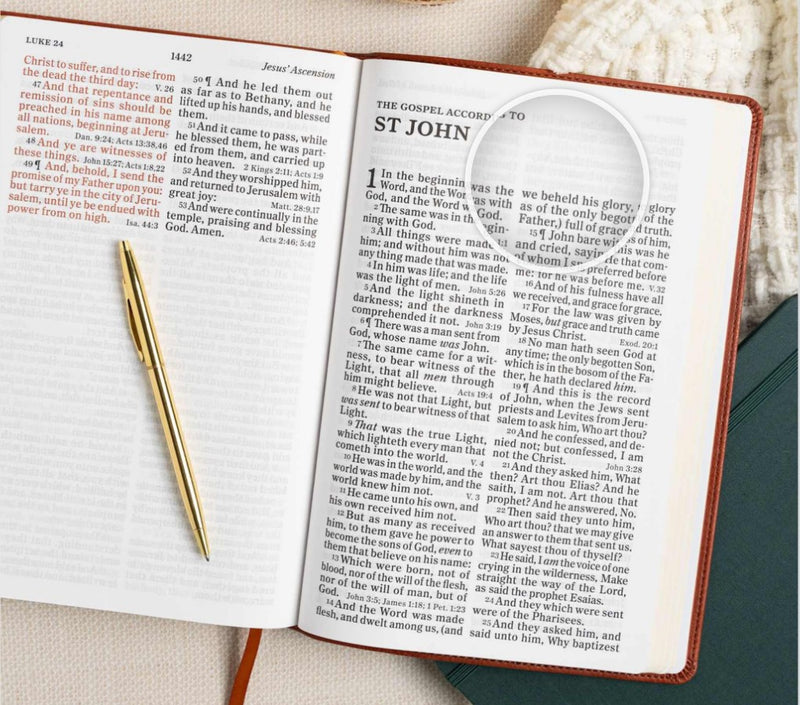 LUKE 24
1442
Jesus' Ascension
Christ to suffer, and to rise from
the dead the third day: V. 26
47 And that repentance and
remission of sins should be
preached in his name among
all nations, beginning at Jeru-
salem. Dan. 9:24; Acts 13:38,46
48 And ye are witnesses of
these things. John 15:27; Acts 1:8,22
49 ¶ And, behold, I send the
promise of my Father upon you:
but tarry ye in the city of Jeru-
salem, until ye be endued with
power from on high. Isa. 44:3
50 ¶ And he led them out
as far as to Bethany, and he
lifted up his hands, and blessed
them.
51 And it came to pass, while
he blessed them, he was part-
ed from them, and carried up
into heaven. 2 Kings 2:11; Acts 1:9
52 And they worshipped him,
and returned to Jerusalem with
great joy: Matt. 28:9,17
53 And were continually in the
temple, praising and blessing
God. Amen. Acts 2:46; 5:42
THE GOSPEL TO
ST JOHN
1 In the beginning was the
Word, and the Word was with
God, and the Word God.
2 The same was in the
ning with God.
3 All things were made
him; and without him was not
any thing made that was made.
4 In him was life; and the life
was the light of men. John 5:26
5 And the light shineth in
darkness; and the darkness
comprehended it not. John 3:19
6 ¶ There was a man sent from
God, whose name was John.
7 The same came for a wit-
ness, to bear witness of the
Light, that all men through
him might believe. Acts 19:4
8 He was not that Light, but
was sent to bear witness of that
Light.
9 That was the true Light,
which lighteth every man that
cometh into the world. V. 4
10 He was in the world, and the
world was made by him, and the
world knew him not. V. 3
11 He came unto his own, and
his own received him not.
12 But as many as received
him, to them gave he power to
become the sons of God, even to
them that believe on his name:
13 Which were born, not of
blood, nor of the will of the flesh,
nor of the will of man, but of
God. John 3:5; James 1:18; 1 Pet. 1:23
14 And the Word was made
flesh, and dwelt among us, (and
we beheld his glory, glory
as of the only begotten of the
Father,) full of grace truth.
15 ¶ John bare witness of him,
and cried, saying, This was he
of whom I He that com-
preferred before
me: for he was before me. V.32
16 And of his fulness have all
we received, and grace for grace.
17 For the law was given by
Moses, but grace and truth came
by Jesus Christ. Exod. 20:1
18 No man hath seen God at
any time; the only begotten Son,
which is in the bosom of the Fa-
ther, he hath declared him.
19 ¶ And this is the record
of John, when the Jews sent
priests and Levites from Jeru-
salem to ask him, Who art thou?
20 And he confessed, and de-
nied not; but confessed, I am
not the Christ. John 3:28
21 And they asked him, What
then? Art thou Elias? And he
saith, I am not. Art thou that
prophet? And he answered, No.
22 Then said they unto him,
Who art thou? that we may give
an answer to them that sent us.
What sayest thou of thyself?
23 He said, I am the voice of one
crying in the wilderness, Make
straight the way of the Lord,
as said the prophet Esaias.
24 And they which were sent
were of the Pharisees.
25 And they asked him, and
said unto him, Why baptizest